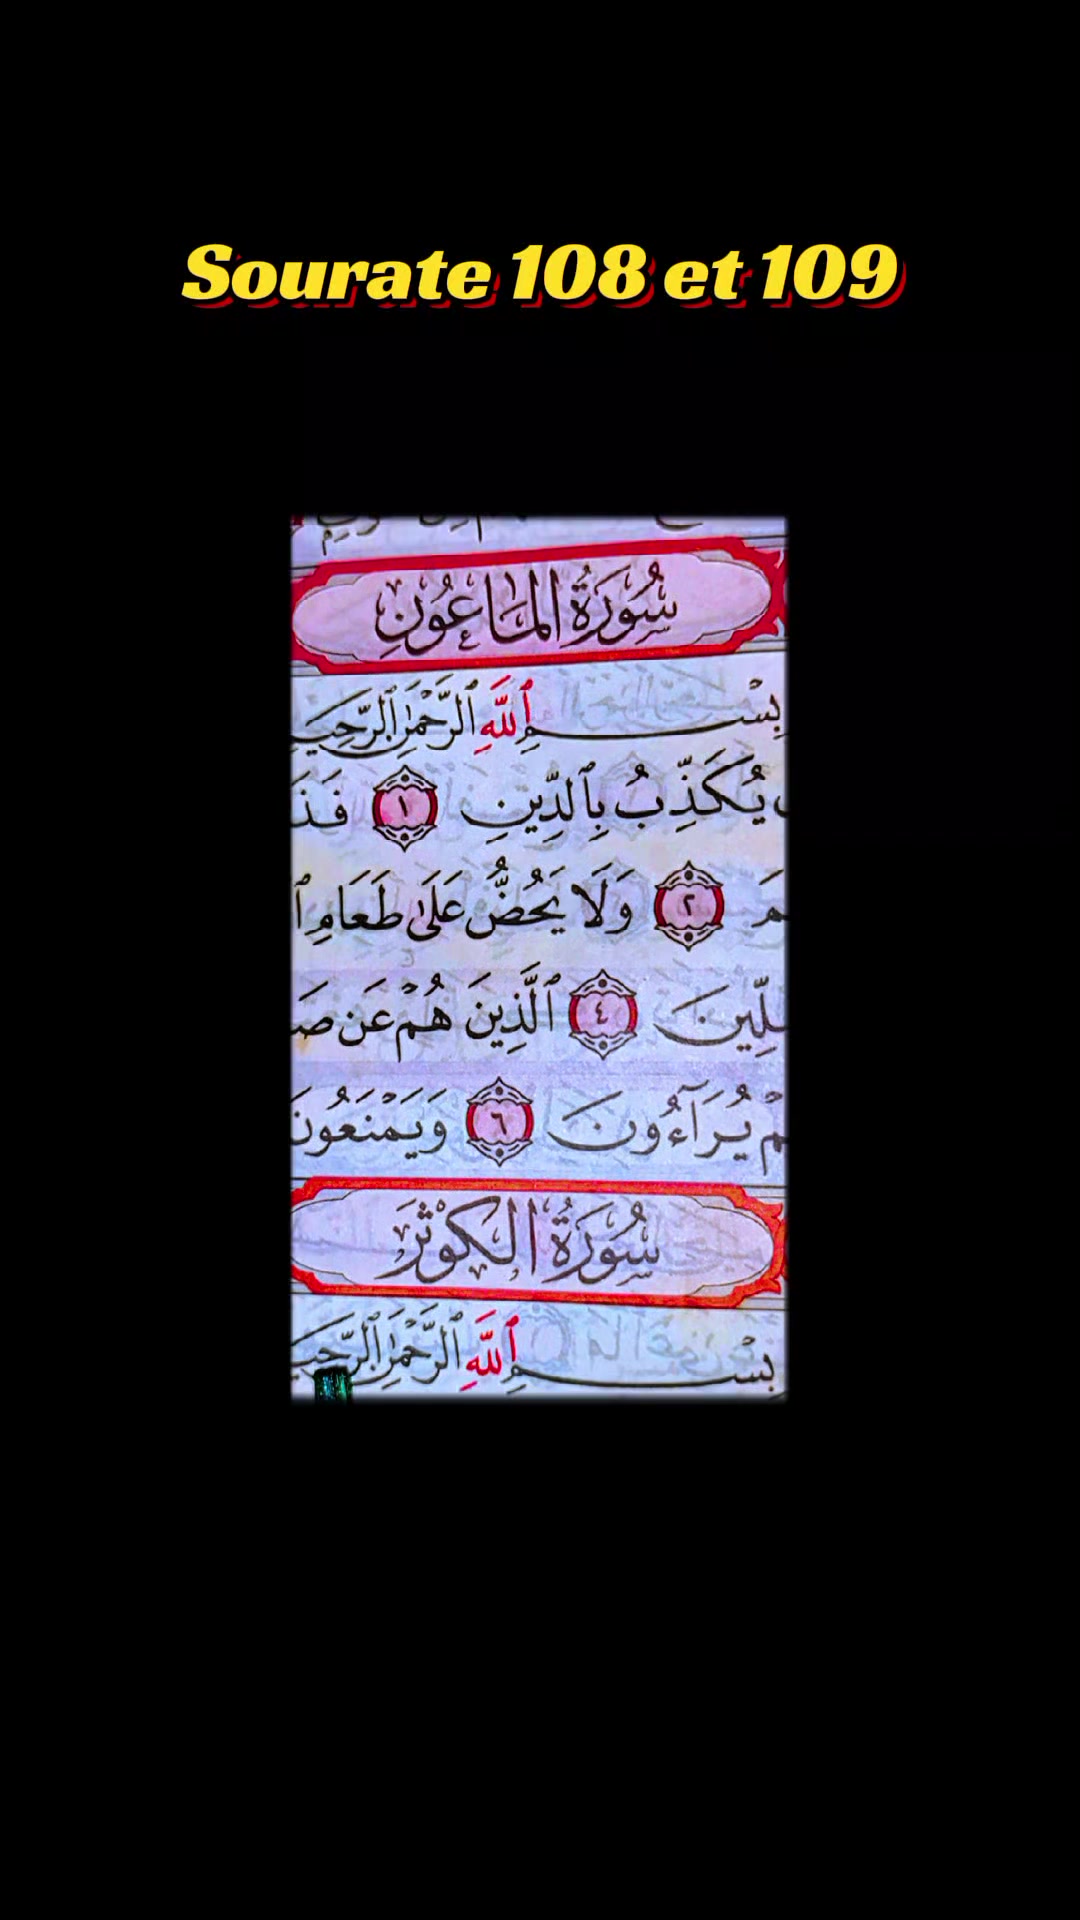 Sourate 108 et 109
سُورَةُ المَاعُونِ
بِسْمِ ٱللَّهِ ٱلرَّحْمَٰنِ ٱلرَّحِي
يُكَذِّبُ بِٱلدِّينِ ١ فَذَ
مَ ٢ وَلَا يَحُضُّ عَلَىٰ طَعَامِ ٱ
لِّينَ ٤ ٱلَّذِينَ هُمْ عَن صَ
مْ يُرَآءُونَ ٦ وَيَمْنَعُونَ
سُورَةُ الكَوْثَرَ
بِسْمِ ٱللَّهِ ٱلرَّحْمَٰنِ ٱلرَّحِي